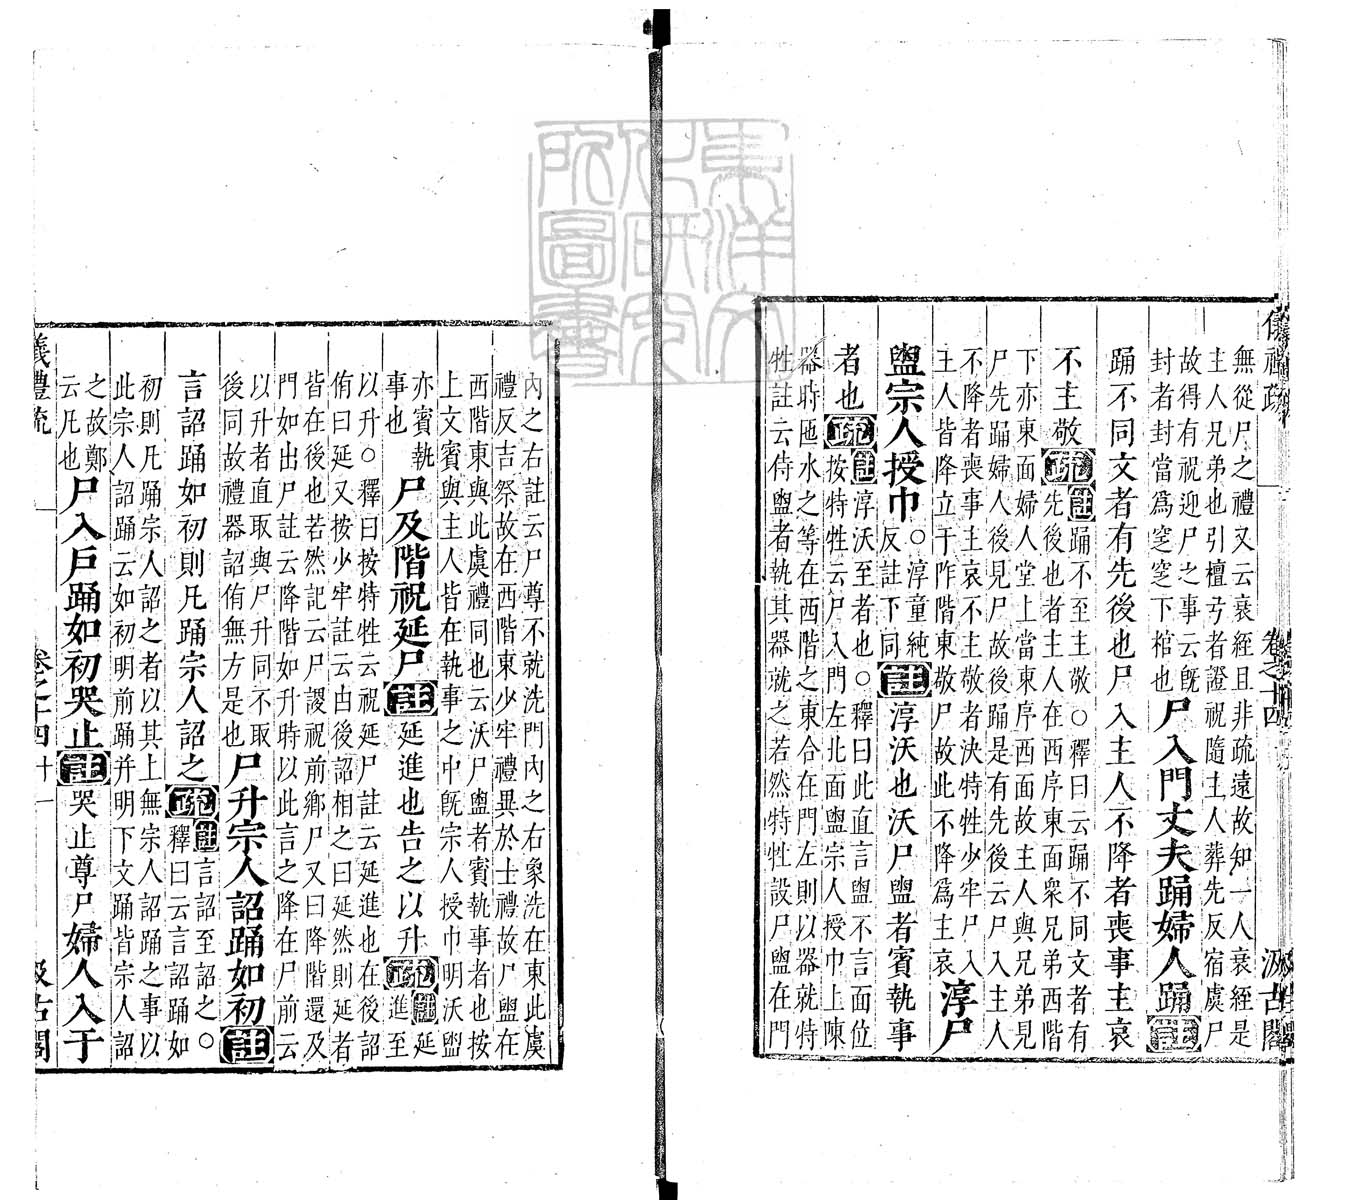 儀禮疏 卷之十四 汲古閣
無從尸之禮又云衰絰且非疏遠故知一人衰絰是
主人兄弟也引檀弓者證祝隨主人葬先反宿虞尸
故得有祝迎尸之事云旣
封者封當爲窆窆下棺也
尸入門丈夫踊婦人踊註
踊不同文者有先後也尸入主人不降者喪事主哀
不主敬疏
註踊不至主敬○釋曰云踊不同文者有
先後也者主人在西序東面衆兄弟西階
下亦東面婦人堂上當東序西面故主人與兄弟見
尸先踊婦人後見尸故後踊是有先後云尸入主人
不降者喪事主哀不主敬者決特牲少牢尸入
主人皆降立于阼階東敬尸故此不降爲主哀
淳尸
盥宗人授巾
○淳童純
反註下同
註淳沃也沃尸盥者賓執事
者也疏
註淳沃至者也○釋曰此直言盥不言面位
按特牲云尸入門左北面盥宗人授巾上陳
器時匜水之等在西階之東合在門左則以器就特
牲註云侍盥者執其器就之若然特牲設尸盥在門
內之右註云尸尊不就洗門內之右象洗在東此虞
禮反吉祭故在西階東少牢禮異於士禮故尸盥在
西階東與此虞禮同也云沃尸盥者賓執事者也按
上文賓與主人皆在執事之中旣宗人授巾明沃盥
亦賓執
事也
尸及階祝延尸註延進也告之以升疏
註延
進至
以升○釋曰按特牲云祝延尸註云延進也在後詔
侑曰延又按少牢註云由後詔相之曰延然則延者
皆在後也若然記云尸謖祝前鄉尸又曰降階還及
門如出尸註云降階如升時以此言之降在尸前云
以升者直取與尸升同不取
後同故禮器詔侑無方是也
尸升宗人詔踊如初註
言詔踊如初則凡踊宗人詔之疏
註言詔至詔之○
釋曰云言詔踊如
初則凡踊宗人詔之者以其上無宗人詔踊之事以
此宗人詔踊云如初明前踊并明下文踊皆宗人詔
之故鄭
云凡也
尸入戶踊如初哭止註哭止尊尸婦人入于
儀禮疏 卷之十四 十一 汲古閣
東洋文化研究所圖書